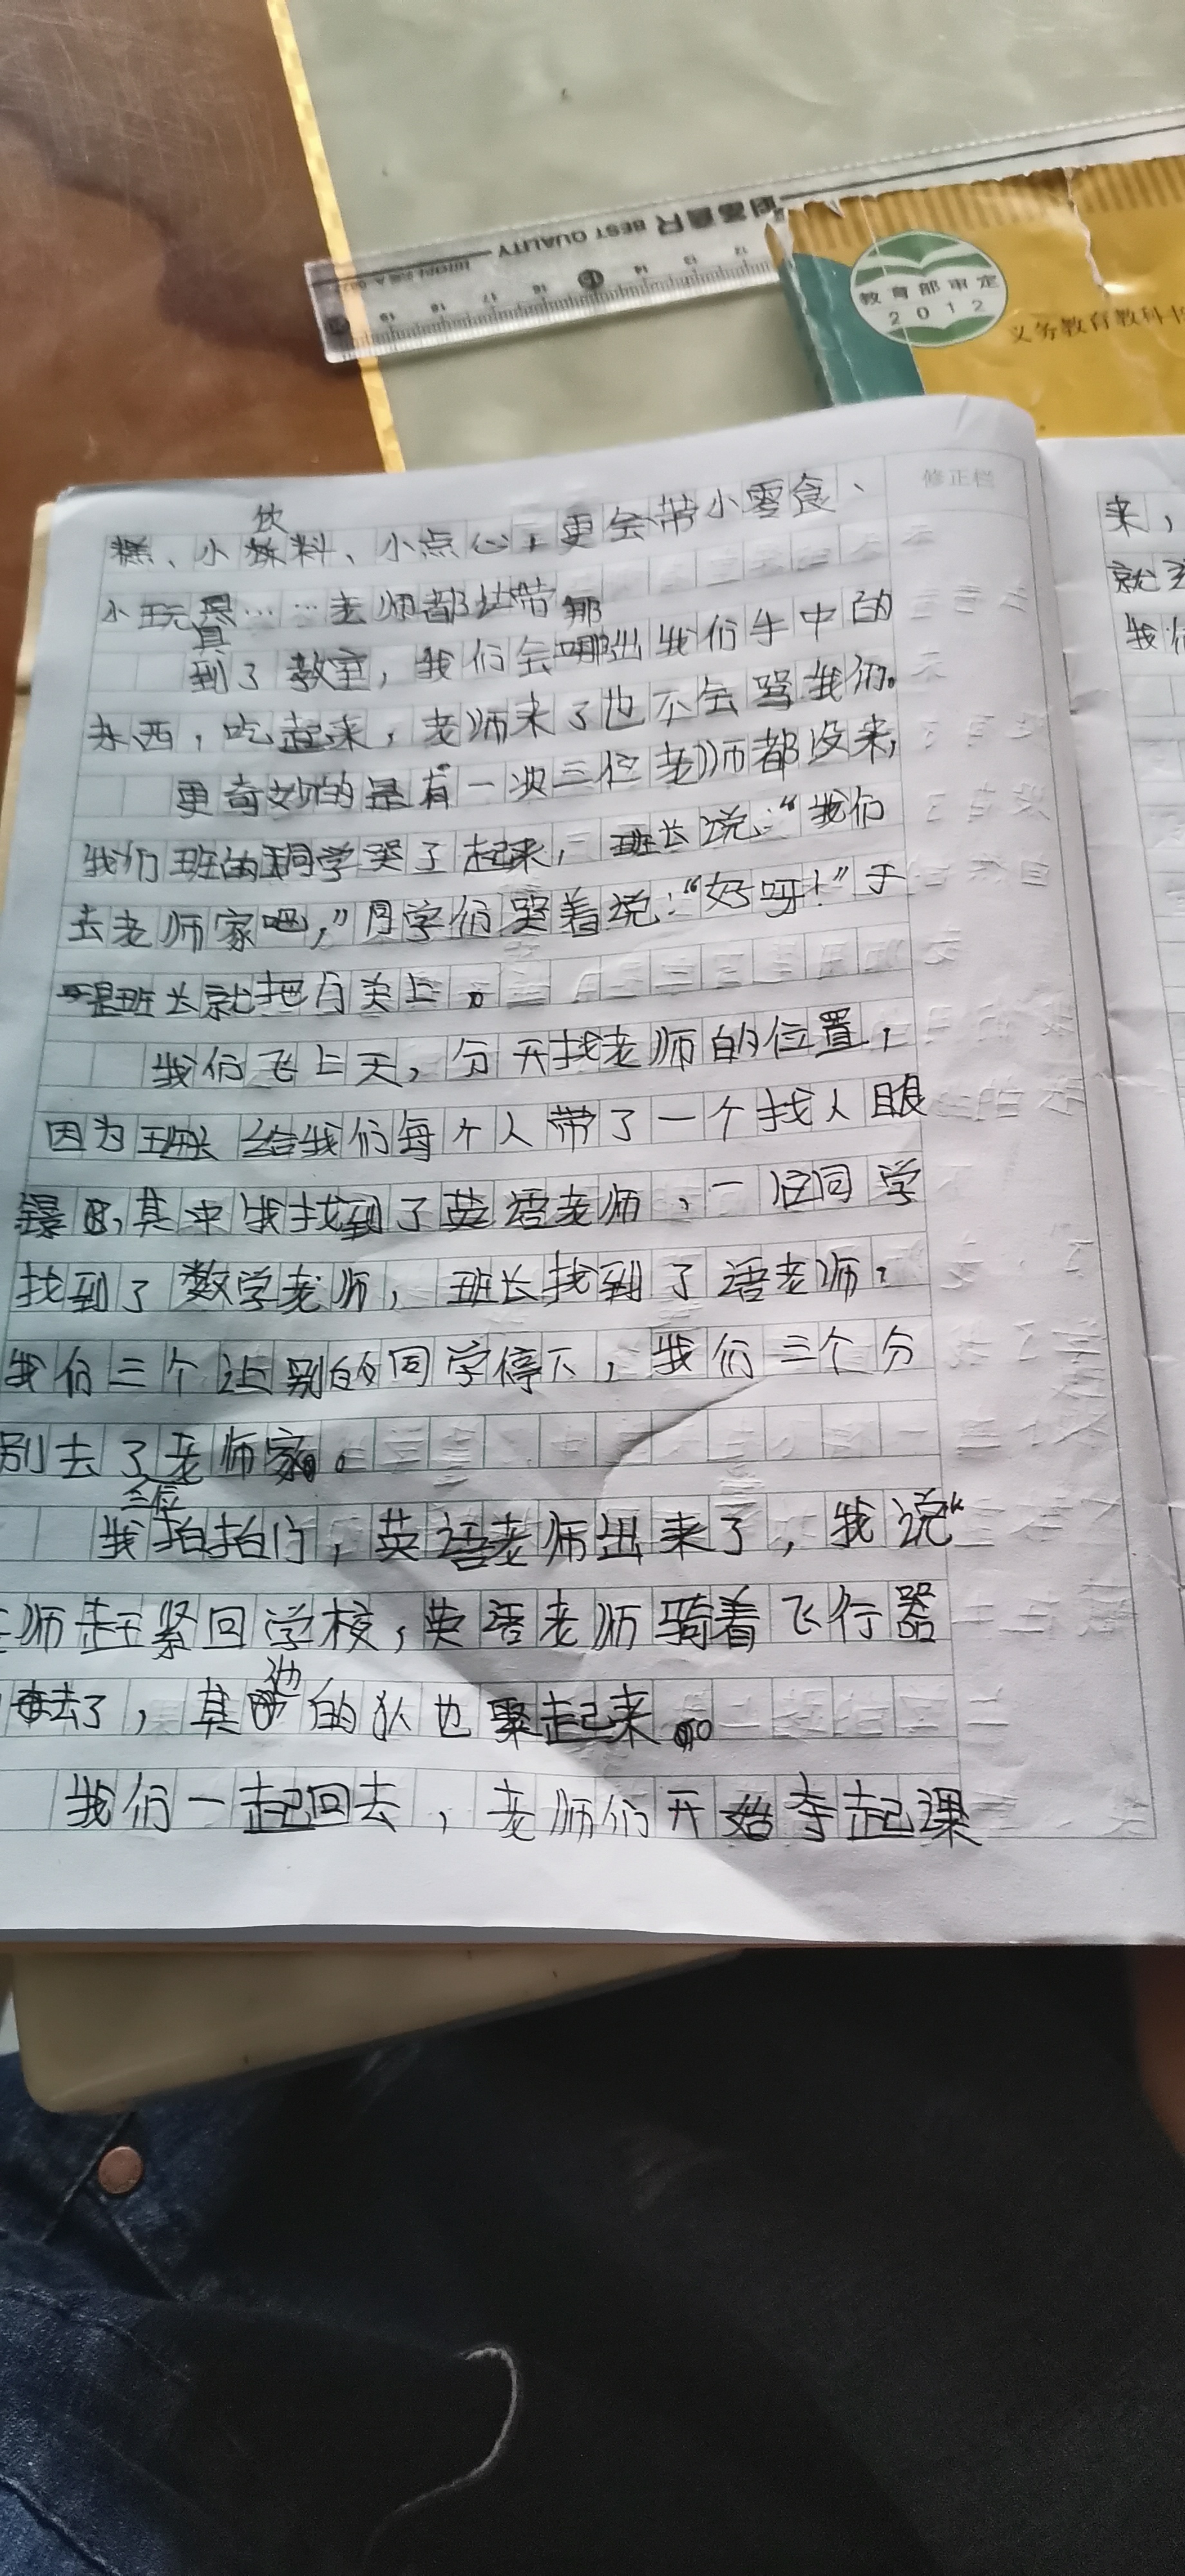 BEST QUALITY
19 18 17 16 15 14 13 12
教育部审定
2012
义务教育教科书
修正栏
饮
糕、小料、小点心,更会带小零食、
小玩具……老师都让带
到了教室,我们会出我们手中的
东西,吃起来,老师来了也不会骂我们。
更奇妙的是有一次三位老师都没来,
我们班的同学哭了起来,班长说:“我们
去老师家吧,”同学们哭着说:“好呀!”于
是班长就把门关上。
我们飞上天,分开找老师的位置,
因为班长给我们每个人带了一个找人眼
镜,其中我找到了英语老师,一位同学
找到了数学老师,班长找到了语老师。
我们三个让别的同学停下,我们三个分
别去了老师家。
三位
我拍拍门,英语老师出来了,我说“
师赶紧回学校,英语老师骑着飞行器
边
去了,其的队也聚起来。
我们一起回去,老师们开始夺起课
来,
就
我们